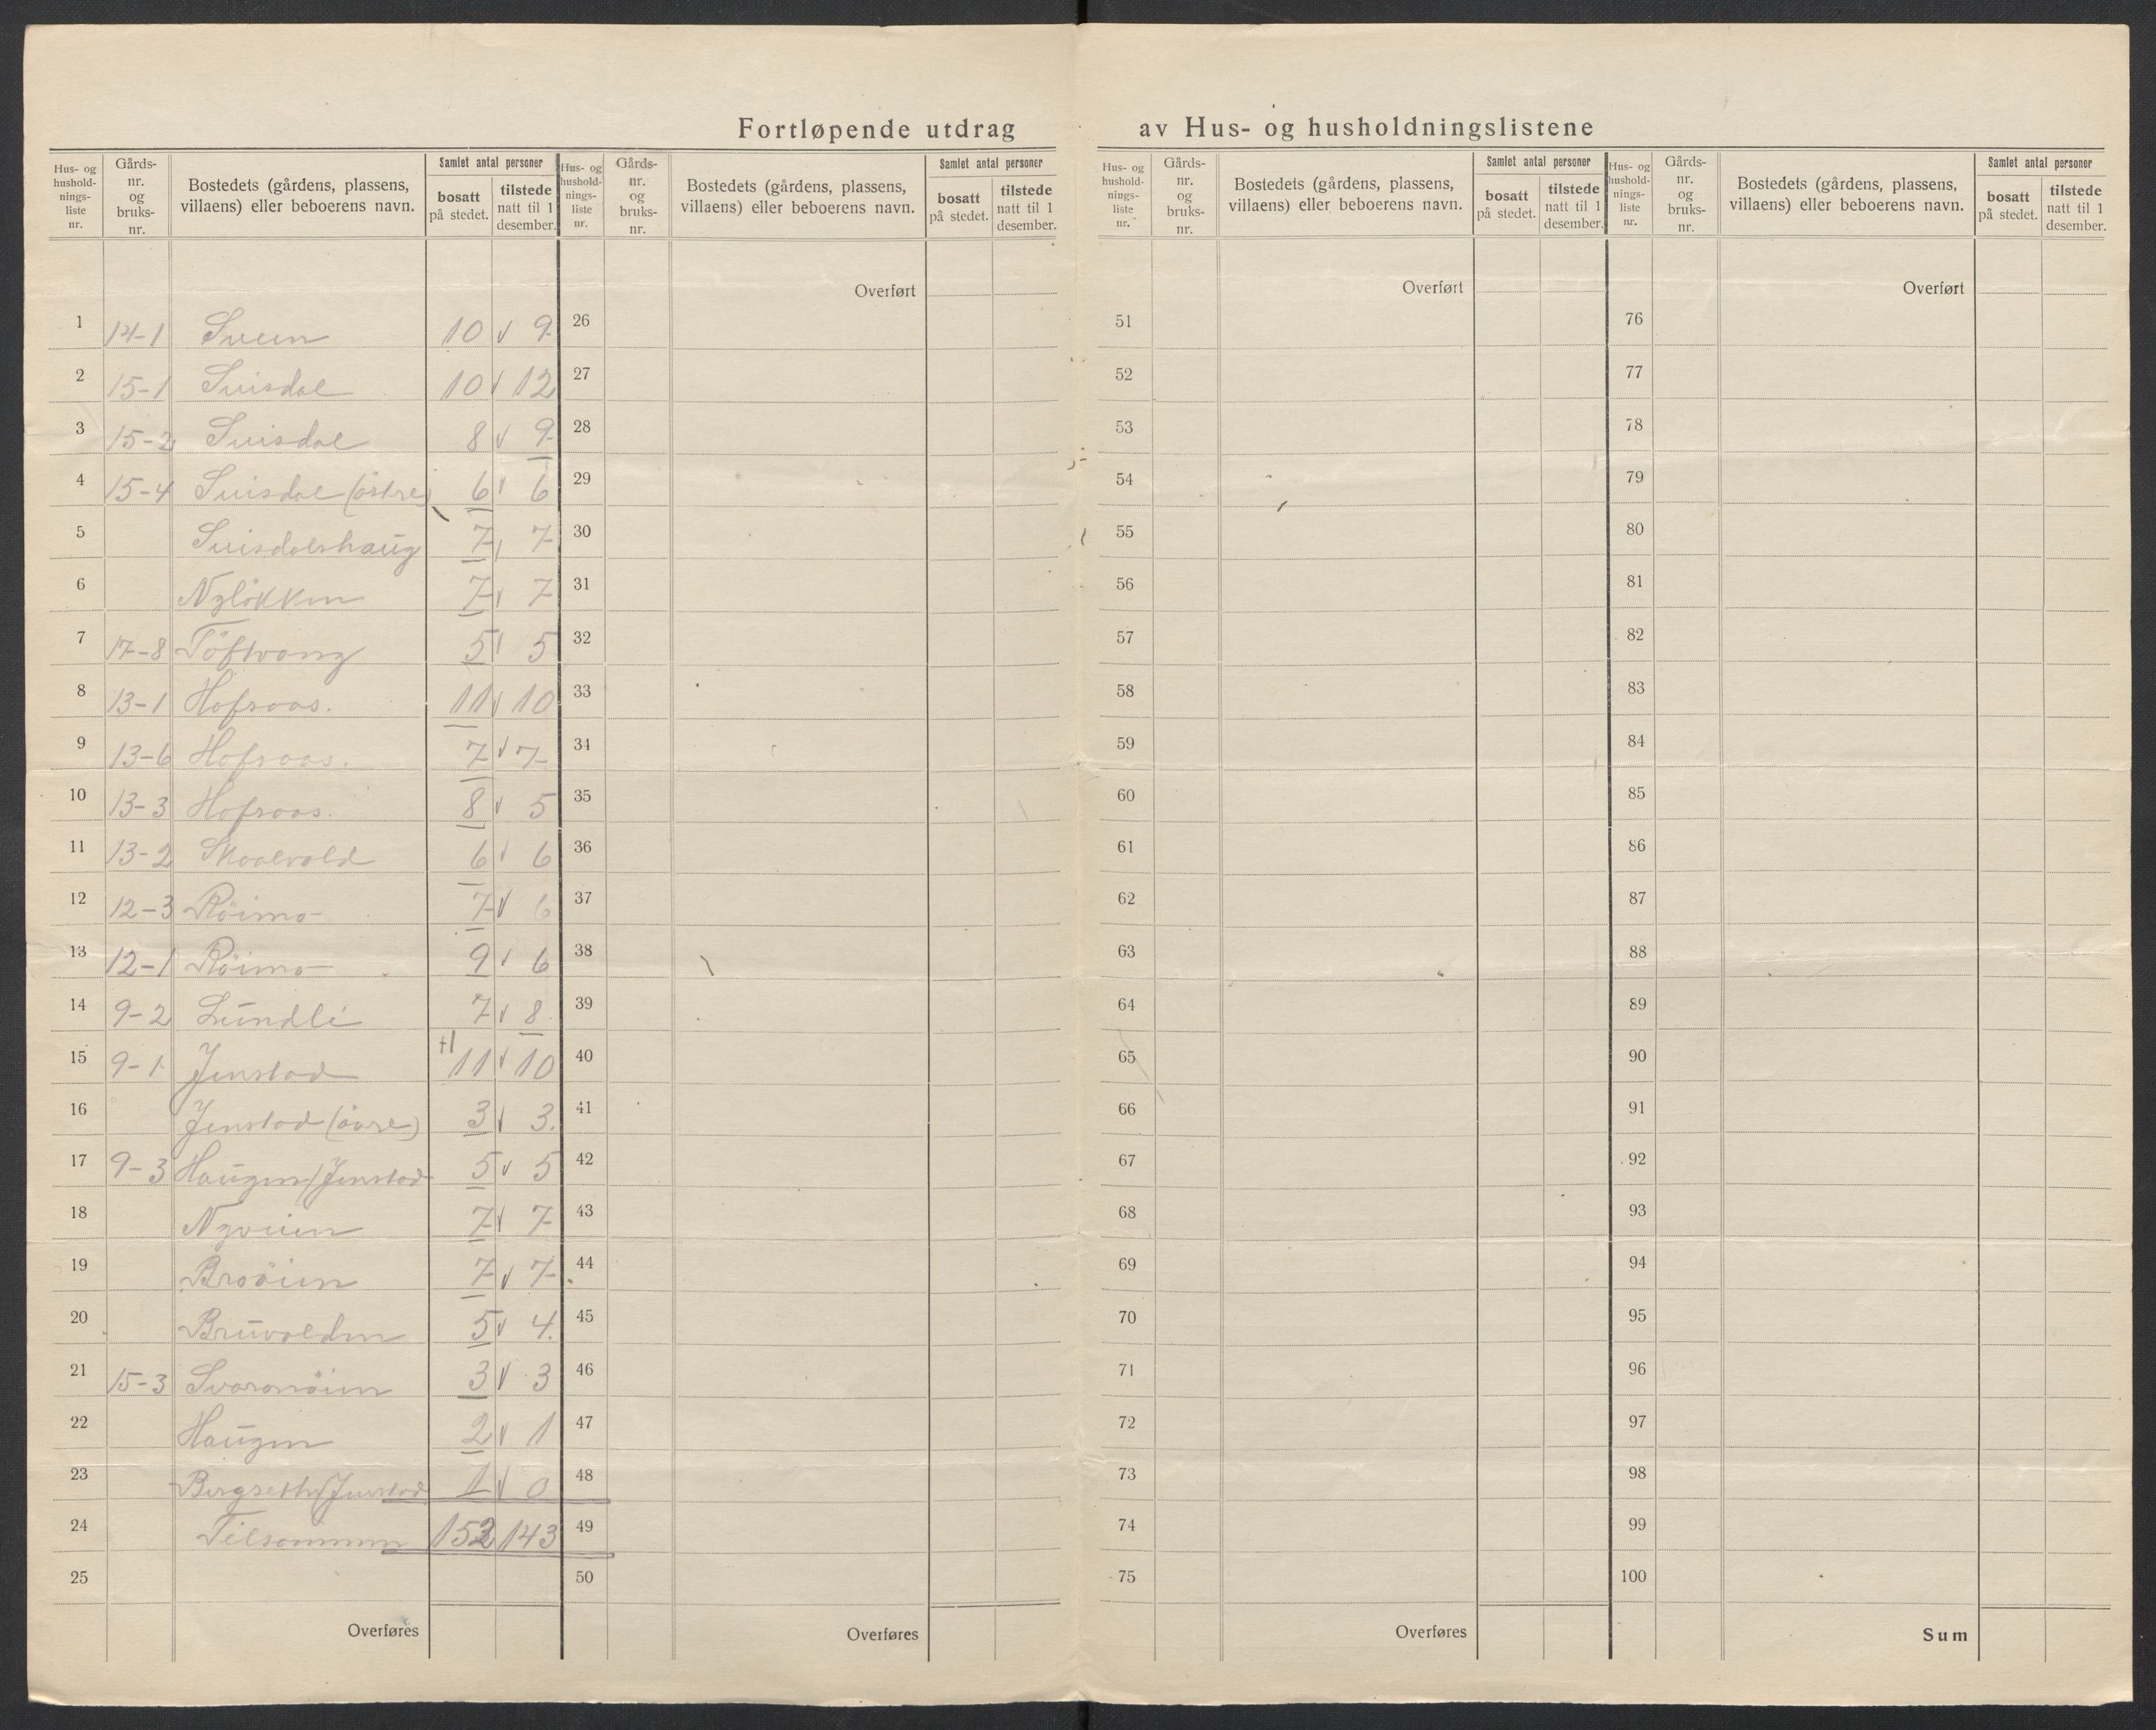 Fortløpende utdrag av Hus- og husholdningslistene
Hus- og hushold-nings-liste nr. Gårds-nr. og bruks-nr. Bostedets (gårdens, plassens, villaens) eller beboerens navn. Samlet antal personer bosatt på stedet. tilstede natt til 1 desember.
Hus- og hushold-nings-liste nr. Gårds-nr. og bruks-nr. Bostedets (gårdens, plassens, villaens) eller beboerens navn. Samlet antal personer bosatt på stedet. tilstede natt til 1 desember.
Hus- og hushold-nings-liste nr. Gårds-nr. og bruks-nr. Bostedets (gårdens, plassens, villaens) eller beboerens navn. Samlet antal personer bosatt på stedet. tilstede natt til 1 desember.
Hus- og hushold-nings-liste nr. Gårds-nr. og bruks-nr. Bostedets (gårdens, plassens, villaens) eller beboerens navn. Samlet antal personer bosatt på stedet. tilstede natt til 1 desember.
Overført Overført Overført
1 14-1 Sveen 10 9 26 51 76
2 15-1 Svisdal 10 12 27 52 77
3 15-2 Svisdal 8 9 28 53 78
4 15-4 Svisdal (östre) 6 6 29 54 79
5 Svisdalshaug 7 7 30 55 80
6 Nyløkken 7 7 31 56 81
7 17-8 Töftvang 5 5 32 57 82
8 13-1 Hafsaas. 11 10 33 58 83
9 13-6 Hafsaas. 7 7 34 59 84
10 13-3 Hafsaas. 8 5 35 60 85
11 13-2 Skaalvold 6 6 36 61 86
12 12-3 Röimo 7 6 37 62 87
13 12-1 Röimo 9 6 38 63 88
14 9-2 Lundli 7 8 39 64 89
15 9-1 Jenstad +1 11 10 40 65 90
16 Jenstad (övre) 3 3. 41 66 91
17 9-3 Haugen/Jenstad 5 5 42 67 92
18 Nyveien 7 7 43 68 93
19 Broöien 7 7 44 69 94
20 Bruvolden 5 4. 45 70 95
21 15-3 Svaronöien 3 3 46 71 96
22 Haugen 2 1 47 72 97
23 Bergseth/Jenstad 1 0 48 73 98
24 Tilsammen 152 143 49 74 99
25 50 75 100
Overføres Overføres Overføres Sum